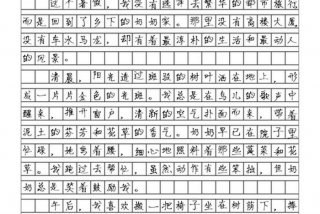 这个暑假，我没有选择去繁华的都市旅行
而是回到了乡下的奶奶家。那里没有高楼大厦，
没有车水马龙，却有着最淳朴的生活和最动人
的风景。
清晨，阳光透过斑驳的树叶洒在地上，形
成一片片金色的光斑。我总是在鸟儿的歌声中
醒来，推开窗户，清新的空气扑面而来，带着
泥土的芬芳和花草的香气。奶奶早已在院子里
忙碌，她弯着腰，细心地照料着那些蔬菜和花
草。我跑过去帮忙，虽然动作有些笨拙，但奶
奶总是笑着鼓励我。
午后，我喜欢搬一把椅子坐在树荫下，捧